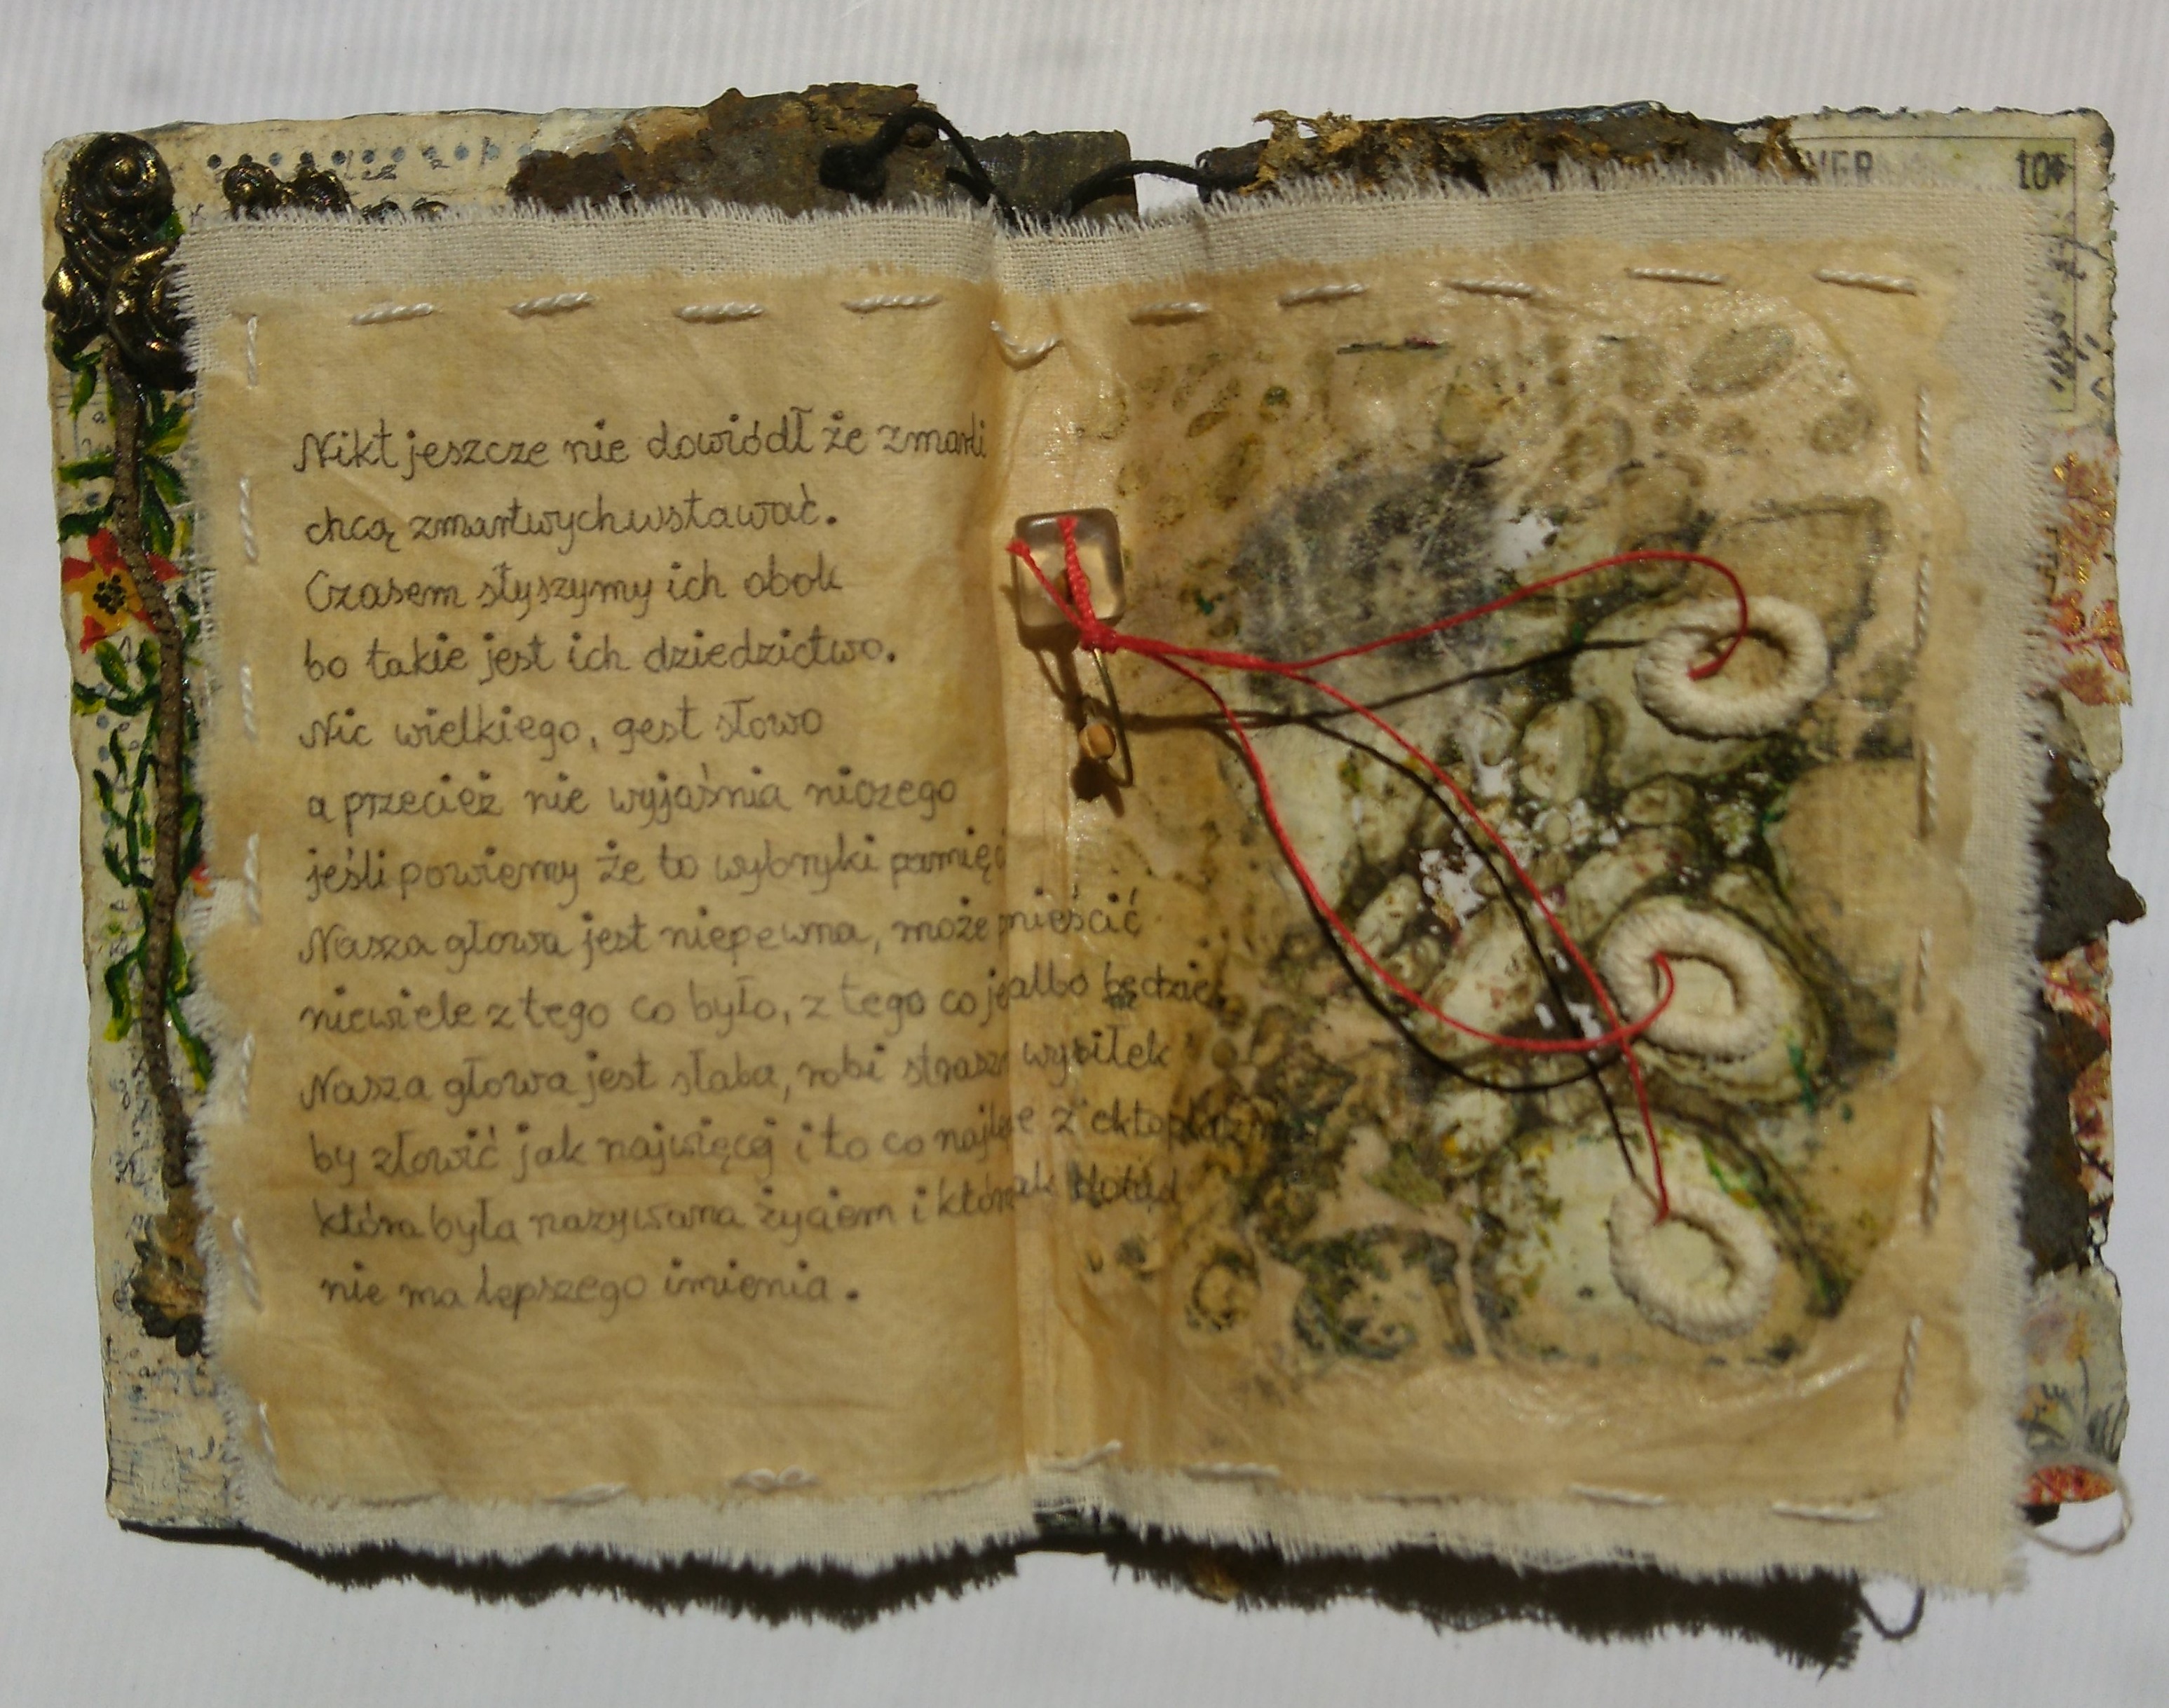 Nikt jeszcze nie dowiódł że zmarli
chcą zmartwychwstawać.
Czasem słyszymy ich obok
bo takie jest ich dziedzictwo.
Nic wielkiego, gest słowo
a przecież nie wyjaśnia niczego
jeśli powiemy że to wybryki pamięci
Nasza głowa jest niepewna, może mieścić
niewiele z tego co było, z tego co je albo będzie
Nasza głowa jest słaba, robi wysiłek
by złowić jak najwięcej i to co z ektoplazmy
która była nazywana życiem i dotąd
nie ma lepszego imienia.
10¢